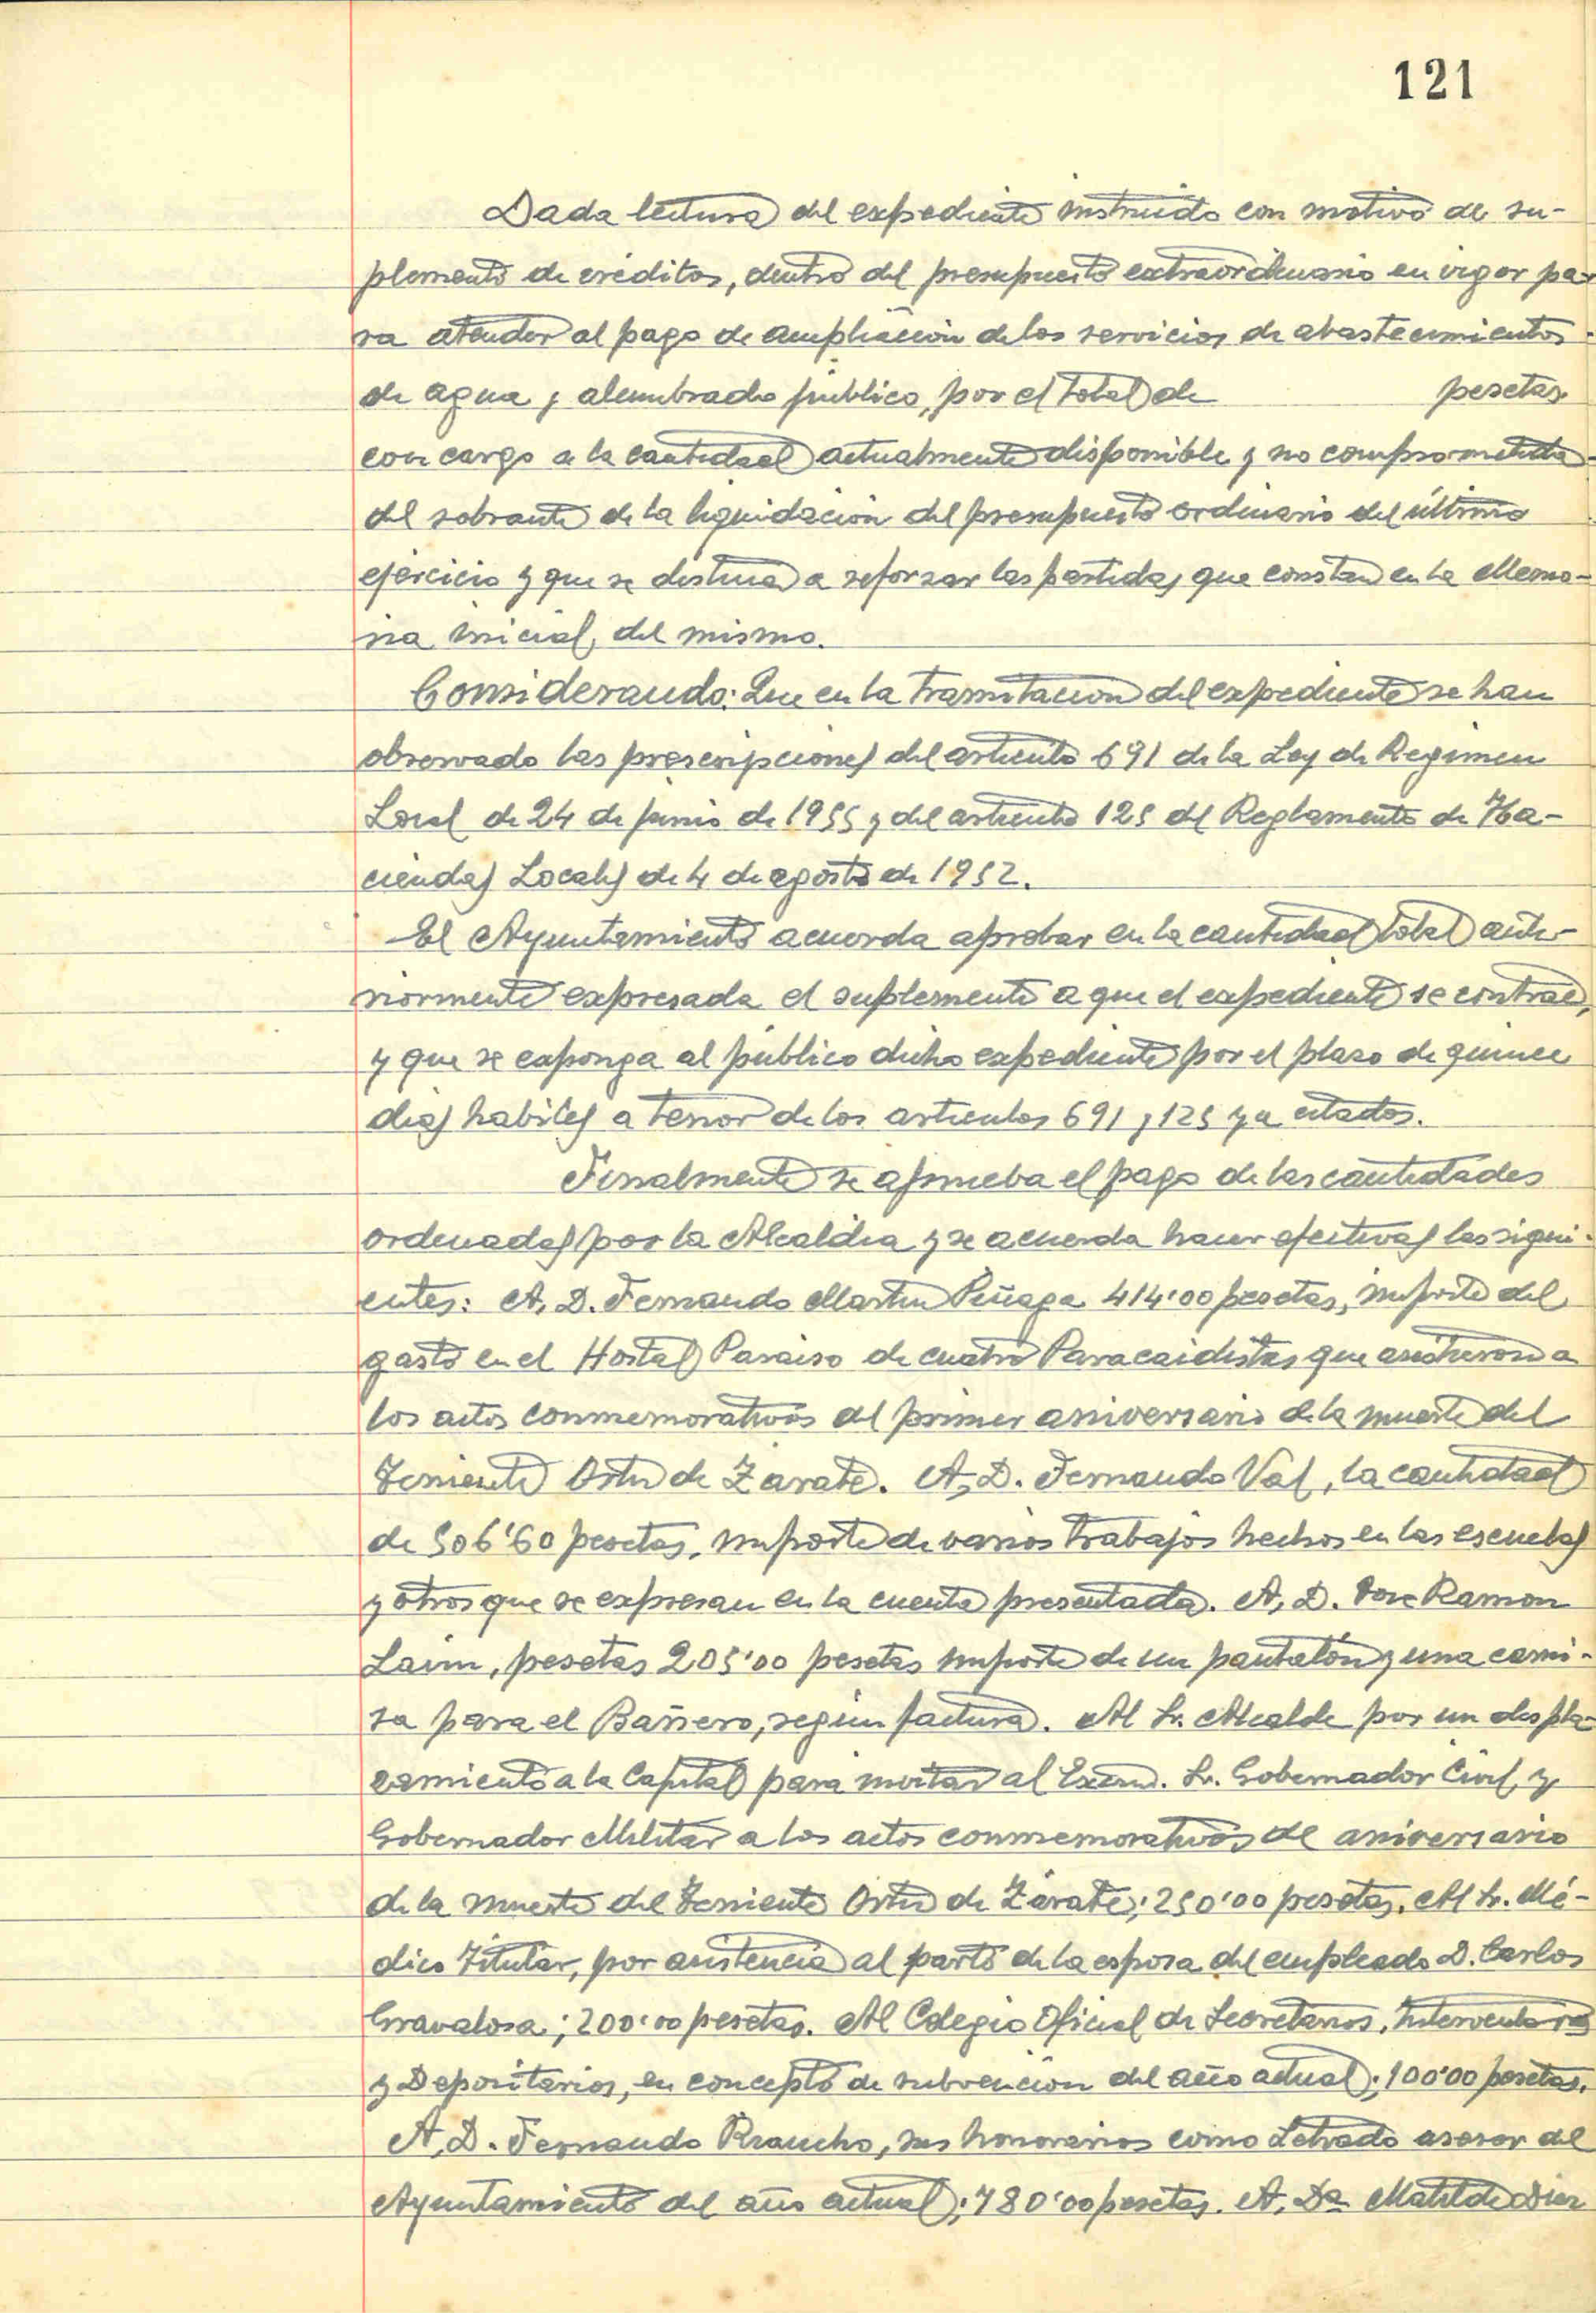 121
Dada lectura del expediente instruido con motivo de su-
plemento de créditos, dentro del presupuesto extraordinario en vigor pa-
ra atender al pago de ampliación de los servicios de abastecimientos
de agua y alumbrado público, por el total de pesetas
con cargo a la cantidad actualmente disponible y no comprometida
del sobrante de la liquidación del presupuesto ordinario del último
ejercicio y que se destina a reforzar las partidas que constan en la Memo-
ria inicial del mismo.
Considerando: Que en la tramitacion del expediente se han
observado las prescripciones del articulo 691 de la Ley de Regimen
Local de 24 de junio de 1955 y del articulo 125 del Reglamento de Ha-
ciendas Locales de 4 de agosto de 1952.
El Ayuntamiento acuerda aprobar en la cantidad total ante-
riormente expresada el suplemento a que el expediente se contrae,
y que se exponga al público dicho expediente por el plazo de quince
dias habiles a tenor de los articulos 691 y 125 ya citados.
Finalmente se aprueba el pago de las cantidades
ordenadas por la Alcaldia y se acuerda hacer efectivas las sigui-
entes: A, D. Fernando Martin 414'00 pesetas, importe del
gasto en el Hostal Paraiso de cuatro Paracaidistas que asistieron a
los actos conmemorativos del primer aniversario de la muerte del
Teniente Ortiz de Zárate. A, D. Fernando Val, la cantidad
de 506'60 pesetas, importe de varios trabajos hechos en las escuelas
y otros que se expresan en la cuenta presentada. A, D. Jose Ramon
Lain, pesetas 205'00 pesetas importe de un pantalón y una cami-
sa para el Barrero, según factura. Al Sr. Alcalde por un despla-
zamiento a la Capital para invitar al Excmo. Sr. Gobernador Civil y
Gobernador Militar a los actos conmemorativos del aniversario
de la muerte del Teniente Ortiz de Zárate; 250'00 pesetas. Al Sr. Mé-
dico Titular, por asistencia al parto de la esposa del empleado D. Carlos
Gravalosa; 200'00 pesetas. Al Colegio Oficial de Secretarios, Interventores
y Depositarios, en concepto de subvención del año actual; 100'00 pesetas.
A, D. Fernando, sus honorarios como Letrado asesor del
Ayuntamiento del año actual; 780'00 pesetas. A, Dª Matilde Diez